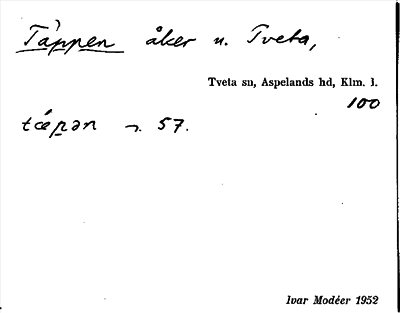 Täppen åker u. Tveta,
Tveta sn, Aspelands hd, Klm. l.
100
57.
Ivar Modéer 1952